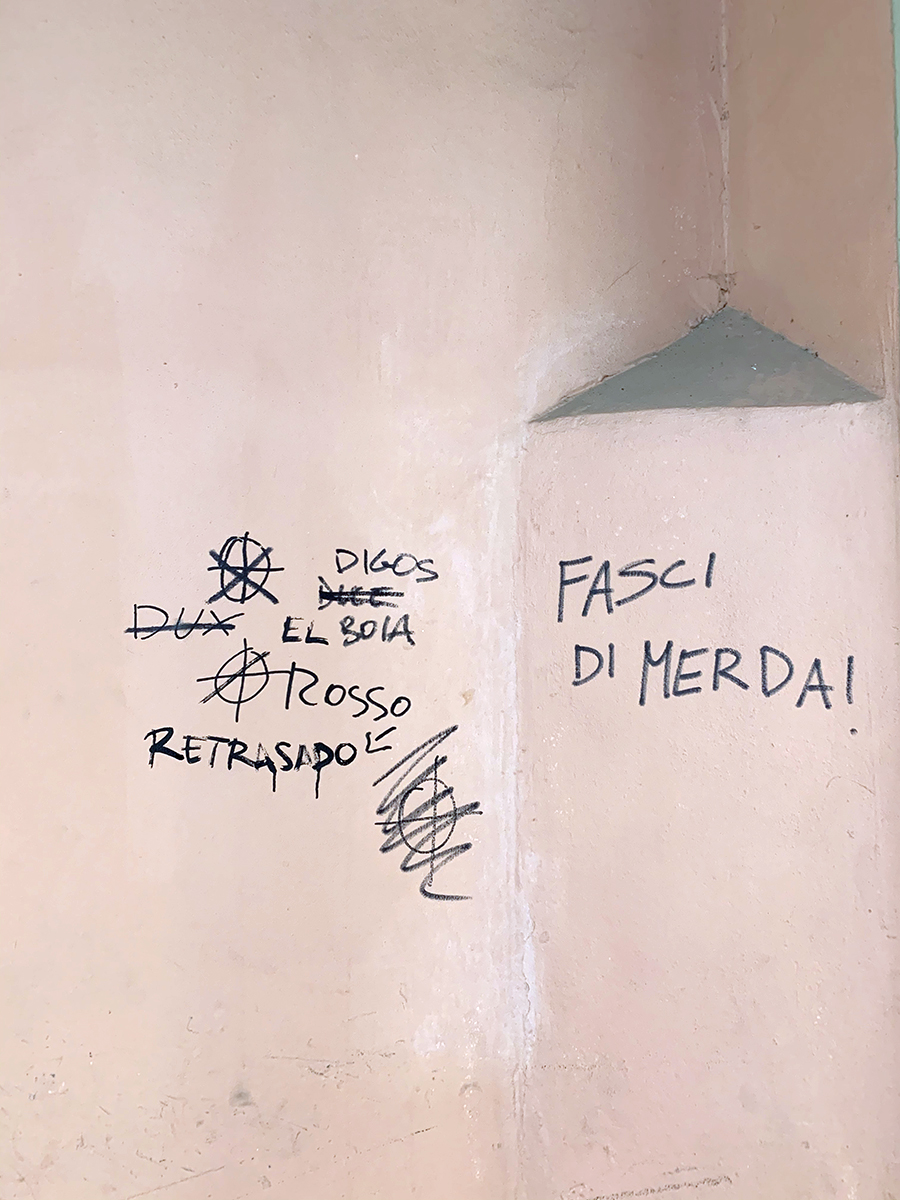 DIGOS
DUCE
DUX
EL BOIA
ROSSO
RETRASADO
FASCI
DI MERDA!